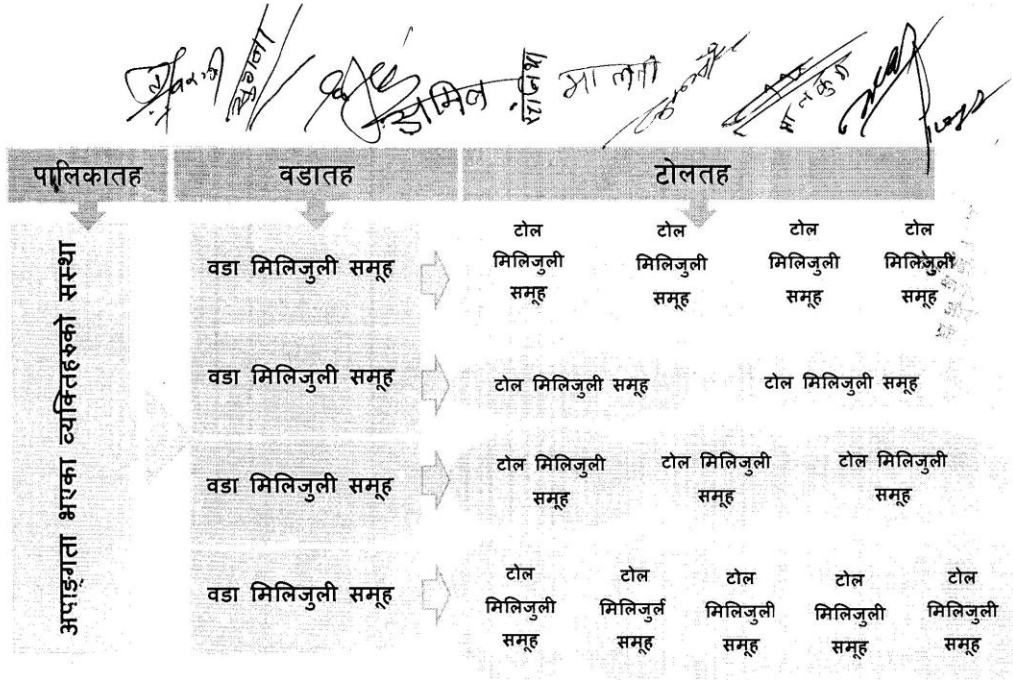 मालती
पालिकातह वडातह टोलतह
अपाङ्गता भएका व्यक्तिहरुको संस्था
वडा मिलिजुली समूह
टोल मिलिजुली समूह
टोल मिलिजुली समूह
टोल मिलिजुली समूह
टोल मिलिजुली समूह
वडा मिलिजुली समूह
टोल मिलिजुली समूह
टोल मिलिजुली समूह
वडा मिलिजुली समूह
टोल मिलिजुली समूह
टोल मिलिजुली समूह
टोल मिलिजुली समूह
वडा मिलिजुली समूह
टोल मिलिजुली समूह
टोल मिलिजुर्ल समूह
टोल मिलिजुली समूह
टोल मिलिजुली समूह
टोल मिलिजुली समूह